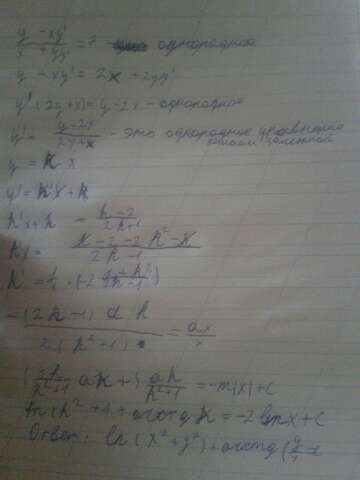 y - xy' / x + yy' = 2 однородное
y - xy' = 2x + 2yy'
y' (2y+x) = y - 2x - однородное
y' = y-2x / 2y+x - это однородное уравнение
заменой
y = k x
y' = k'x + k
k'x + k = k-2 / 2k+1
k'x = k-2-2k²-k / 2k-1
k' = 1/x · (-2
- (2k+1) dk / 2(k²+1) = dx / x
dk + ∫ dk / k²+1 = -ln|x| + C
ln(k²+1) + arctg k = -2 ln x + C
Ответ: ln(x²+y²) + arctg (y/x